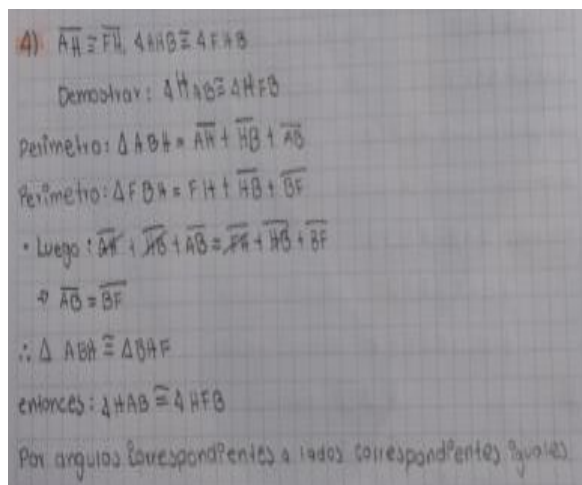 4) A̅H̅ ≅ F̅H̅, ∡AHB ≅ ∡FHB
Demostrar: ∡HAB ≅ ∡HFB
Perímetro: Δ ABH = A̅H̅ + H̅B̅ + A̅B̅
Perímetro: Δ FBH = FH + H̅B̅ + B̅F̅
• Luego: A̅H̅ + H̅B̅ + A̅B̅ = F̅H̅ + H̅B̅ + B̅F̅
⇒ A̅B̅ = B̅F̅
∴ Δ ABH ≅ Δ BHF
entonces: ∡HAB ≅ ∡HFB
Por angulos correspondientes a lados correspondientes iguales.